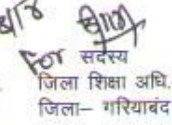 For
सदस्य
जिला शिक्षा अधि.
जिला– गरियाबंद